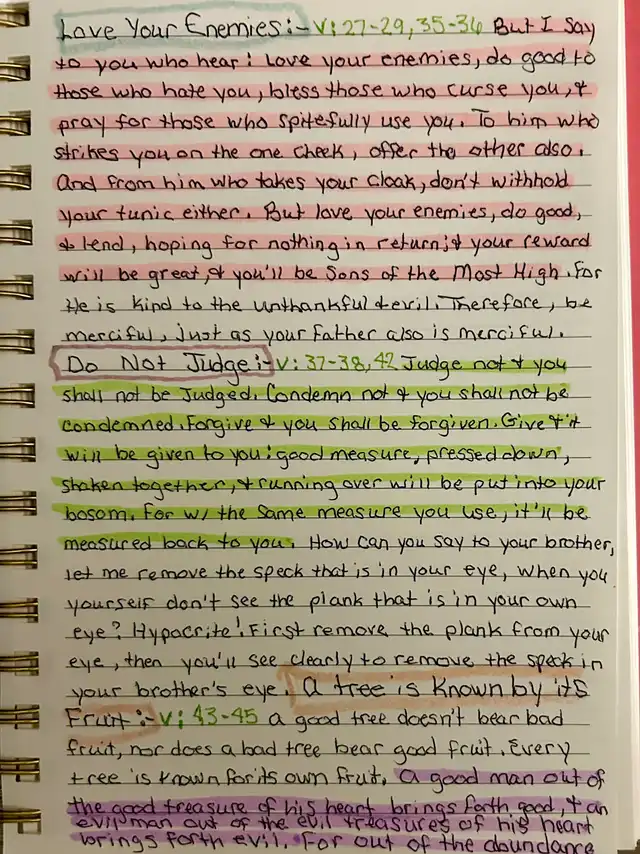 Love Your Enemies:- V: 27-29, 35-36 But I say
to you who hear: Love your enemies, do good to
those who hate you, bless those who curse you, &
pray for those who spitefully use you. To him who
strikes you on the one cheek, offer the other also.
And from him who takes your cloak, don't withhold
your tunic either. But love your enemies, do good,
& lend, hoping for nothing in return; & your reward
will be great, & you'll be Sons of the Most High. For
He is kind to the unthankful & evil. Therefore, be
merciful, just as your Father also is merciful.
Do Not Judge:- V: 37-38, 42 Judge not & you
shall not be judged. Condemn not & you shall not be
condemned. Forgive & you shall be forgiven. Give & it
will be given to you: good measure, pressed down,
shaken together, & running over will be put into your
bosom. For w/ the same measure you use, it'll be
measured back to you. How can you say to your brother,
let me remove the speck that is in your eye, when you
yourself don't see the plank that is in your own
eye? Hypocrite! First remove the plank from your
eye, then you'll see clearly to remove the speck in
your brother's eye. A tree is Known by its
Fruit:- V: 43-45 a good tree doesn't bear bad
fruit, nor does a bad tree bear good fruit. Every
tree is known for its own fruit. A good man out of
the good treasure of his heart brings forth good, & an
evil man out of the evil treasures of his heart
brings forth evil. For out of the abundance